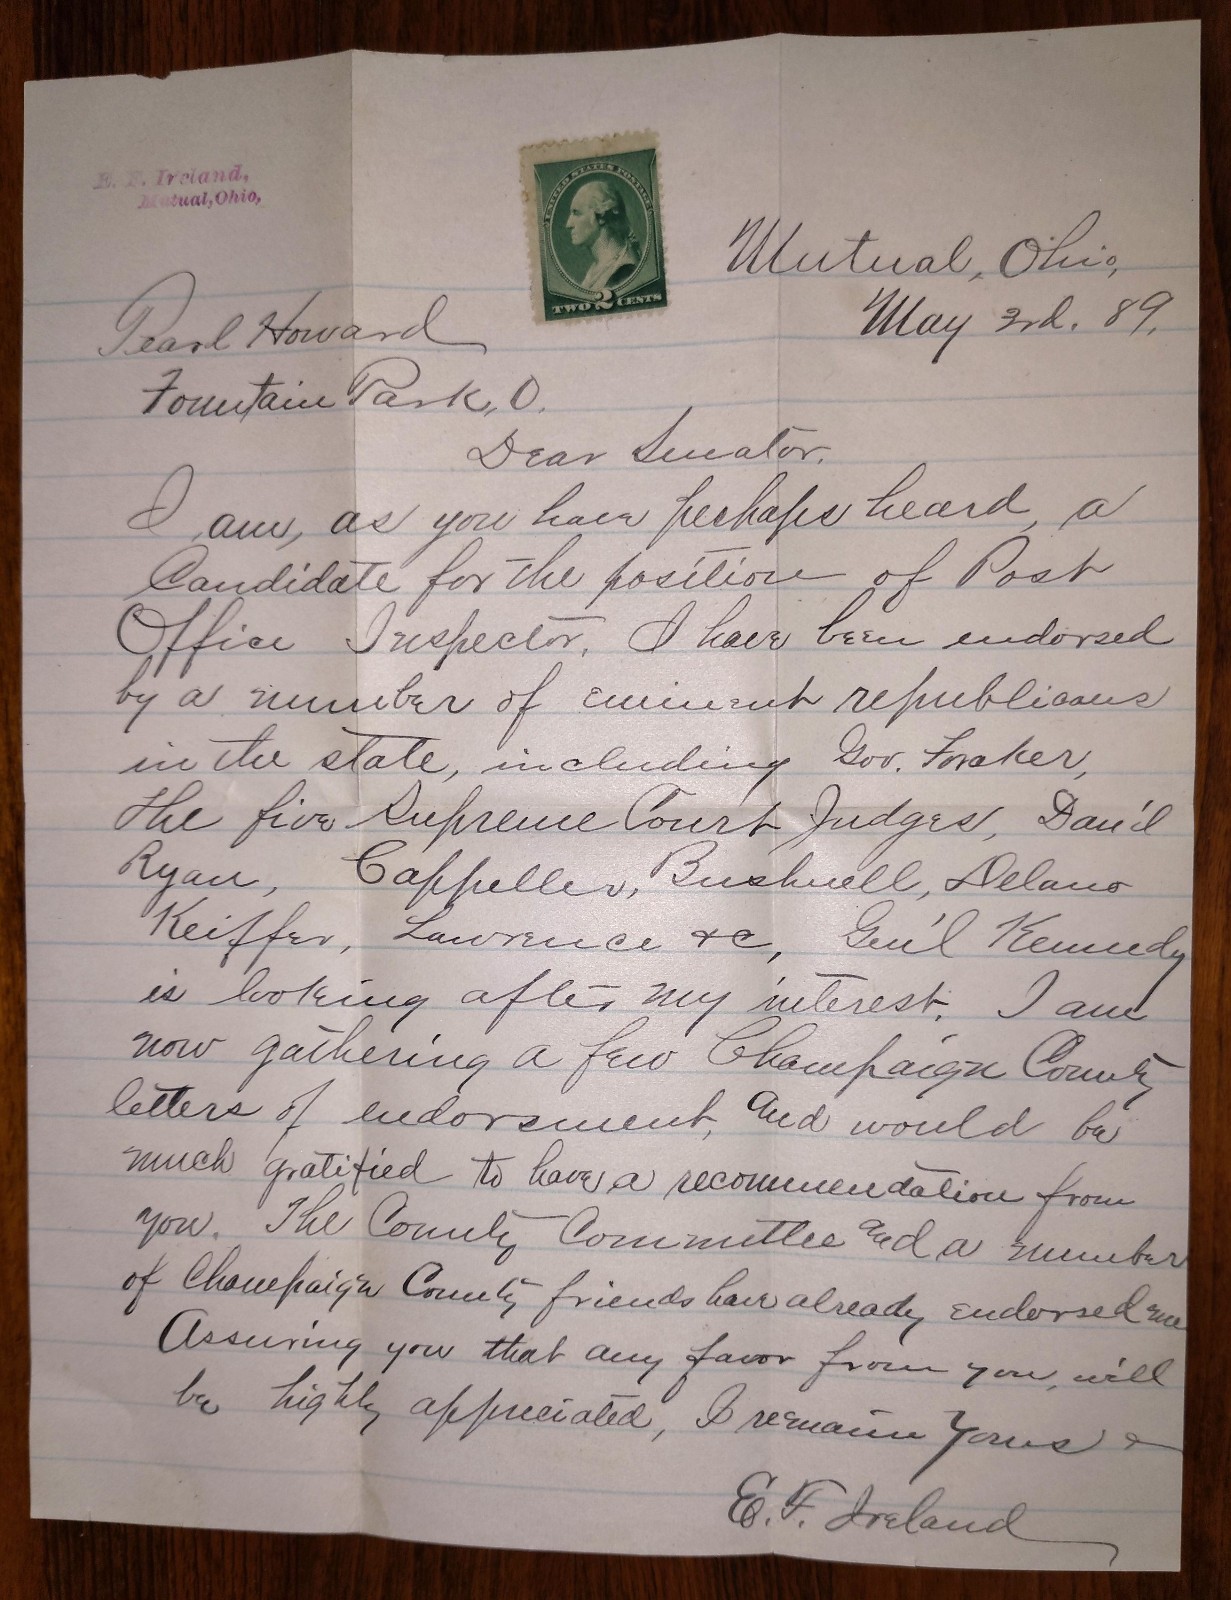 E. F. Ireland,
Mutual, Ohio,
UNITED STATES POSTAGE
TWO 2 CENTS
Mutual, Ohio,
May 3rd. 89.
Pearl Howard
Fountain Park, O.
Dear Senator.
I am, as you have perhaps heard, a
Candidate for the position of Post
Office Inspector. I have been endorsed
by a number of eminent republicans
in the state, including Gov. Foraker,
the five Supreme Court Judges, Dan'l
Ryan, Cappeller, Bushnell, Delano
Keiffer, Lawrence &c, Gen'l Kennedy
is looking after my interest. I am
now gathering a few Champaign County
letters of endorsment, and would be
much gratified to have a recommendation from
you. The County Committee and a number
of Champaign County friends have already endorsed me
Assuring you that any favor from you, will
be highly appreciated, I remain Yours &
E. F. Ireland